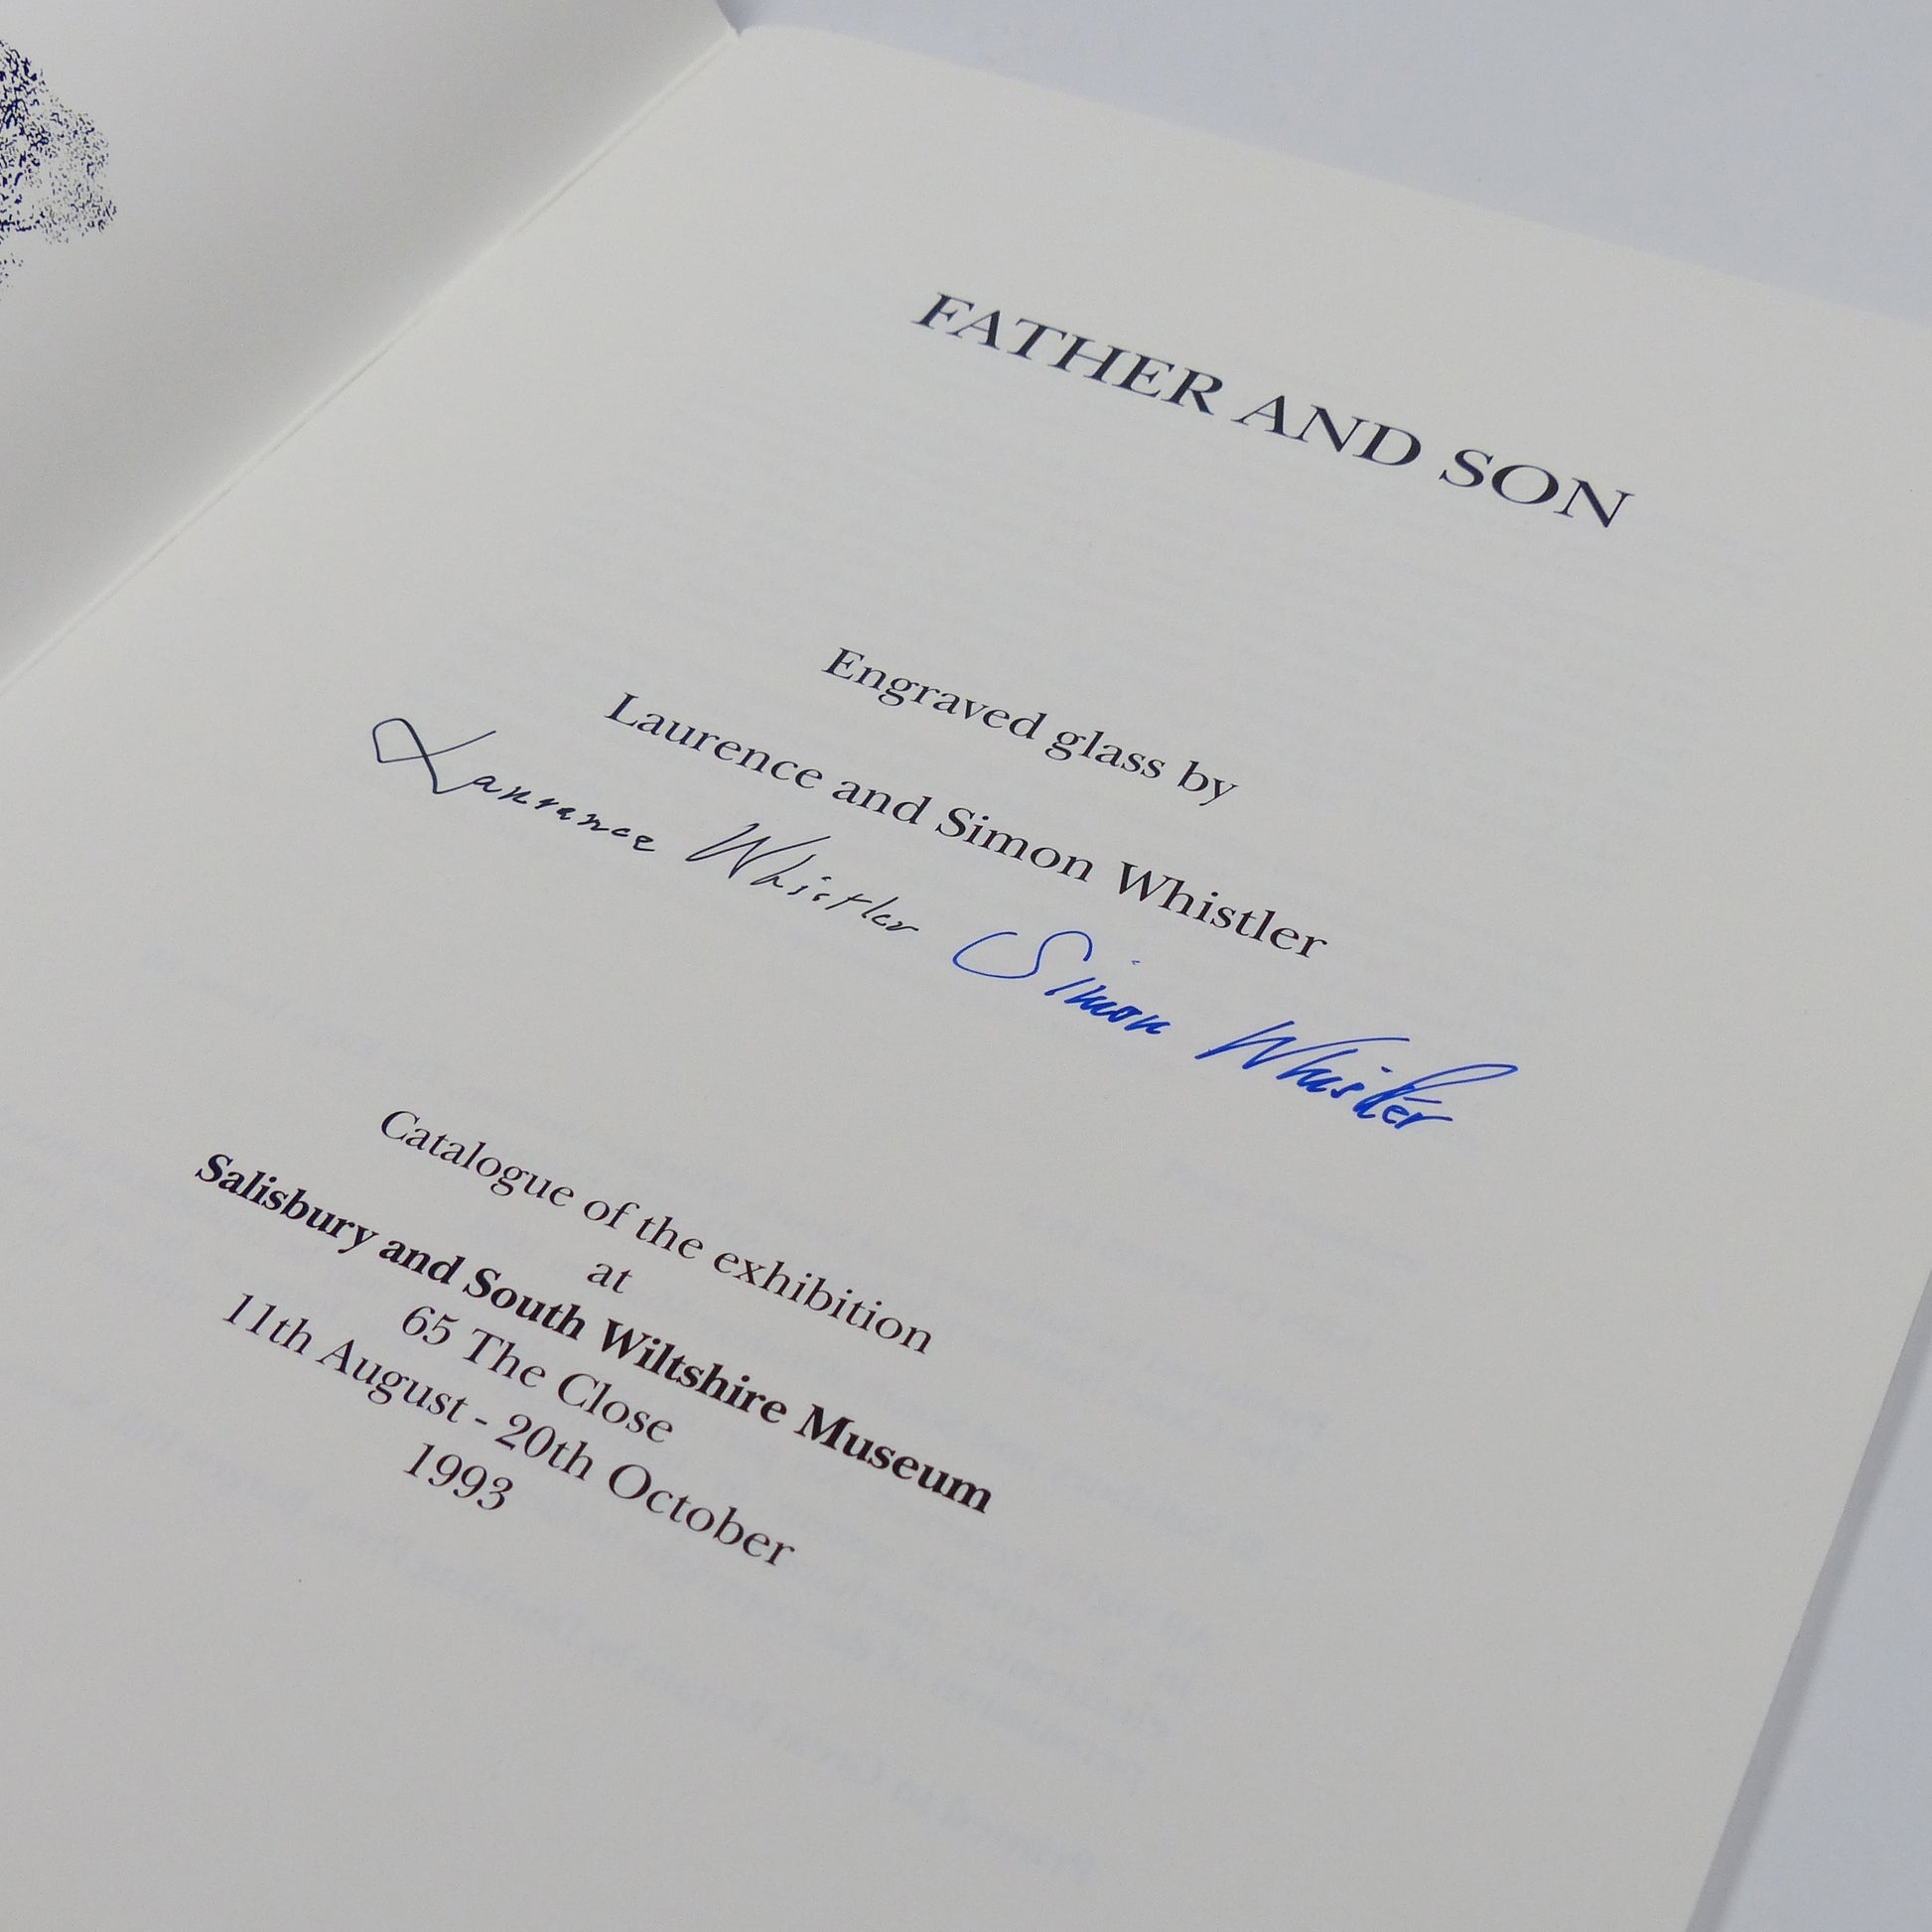 FATHER AND SON
Engraved glass by
Laurence and Simon Whistler
Laurence Whistler Simon Whistler
Catalogue of the exhibition
at
Salisbury and South Wiltshire Museum
65 The Close
11th August - 20th October
1993